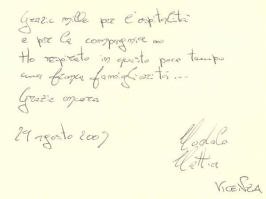 Grazie mille per l'ospitalità
e per la compagnia...
Ho respirato in questo poco tempo
una familiarità...
Grazie ancora
29 agosto 2007
Mattia
VICENZA